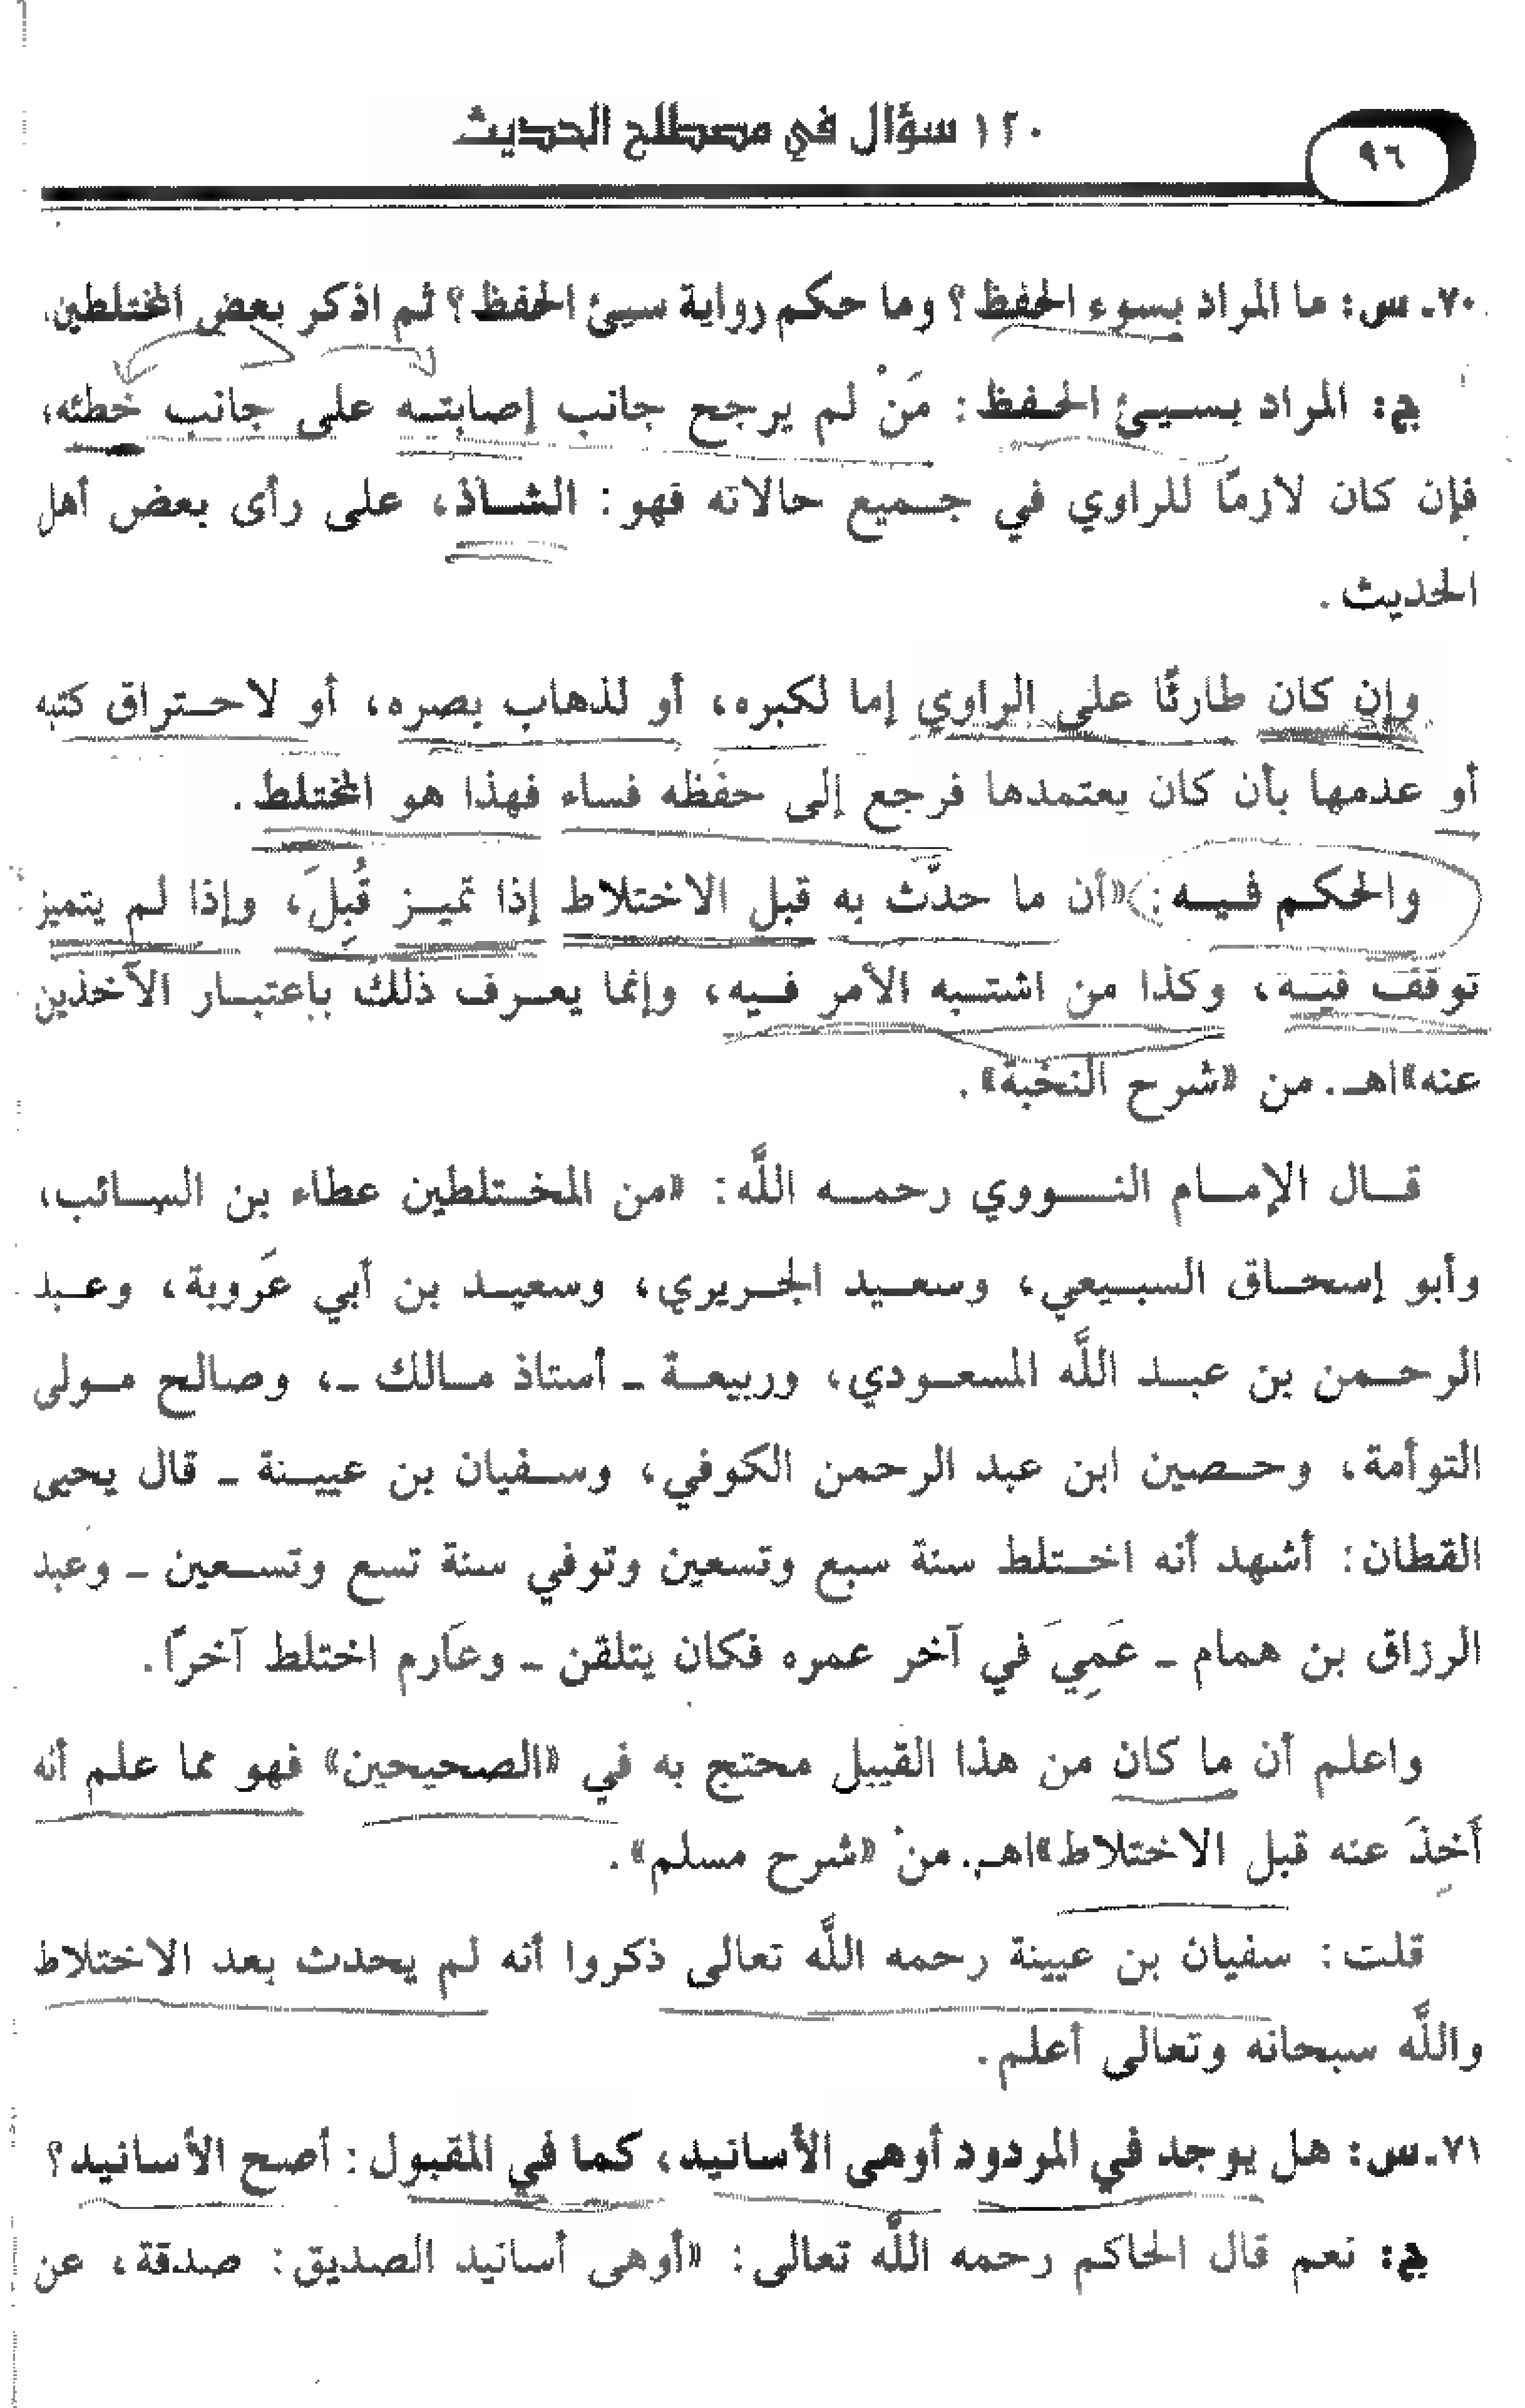 ١٢٠ سؤال في مصطلح الحديث
٩٦
٧٠ـ س: ما المراد بسوء الحفظ؟ وما حكم رواية سيئ الحفظ؟ ثم اذكر بعض المختلطين.
ج: المراد بسيئ الحفظ: مَنْ لم يرجح جانب إصابته على جانب خطئه،
فإن كان لازمًا للراوي في جميع حالاته فهو: الشاذ، على رأى بعض أهل
الحديث.
وإن كان طارئًا على الراوي إما لكبره، أو لذهاب بصره، أو لاحتراق كتبه
أو عدمها بأن كان يعتمدها فرجع إلى حفظه فساء فهذا هو المختلط.
والحكم فيه: «أن ما حدَّث به قبل الاختلاط إذا تميز قُبِلَ، وإذا لم يتميز
توقف فيه، وكذا من اشتبه الأمر فيه، وإنما يعرف ذلك باعتبار الآخذين
عنه»اهـ. من «شرح النخبة».
قال الإمام النووي رحمه اللَّه: «من المختلطين عطاء بن السائب،
وأبو إسحاق السبيعي، وسعيد الجريري، وسعيد بن أبي عَروبة، وعبد
الرحمن بن عبد اللَّه المسعودي، وربيعة ـ أستاذ مالك ـ، وصالح مولى
التوأمة، وحصين ابن عبد الرحمن الكوفي، وسفيان بن عيينة ـ قال يحيى
القطان: أشهد أنه اختلط سنة سبع وتسعين وتوفي سنة تسع وتسعين ـ وعبد
الرزاق بن همام ـ عَمِيَ في آخر عمره فكان يتلقن ـ وعَارم اختلط آخرًا.
واعلم أن ما كان من هذا القبيل محتج به في «الصحيحين» فهو مما علم أنه
أَخِذَ عنه قبل الاختلاط»اهـ. منْ «شرح مسلم».
قلت: سفيان بن عيينة رحمه اللَّه تعالى ذكروا أنه لم يحدث بعد الاختلاط
واللَّه سبحانه وتعالى أعلم.
٧١ـ س: هل يوجد في المردود أوهى الأسانيد، كما في المقبول: أصح الأسانيد؟
ج: نعم قال الحاكم رحمه اللَّه تعالى: «أوهى أسانيد الصديق: صدقة، عن